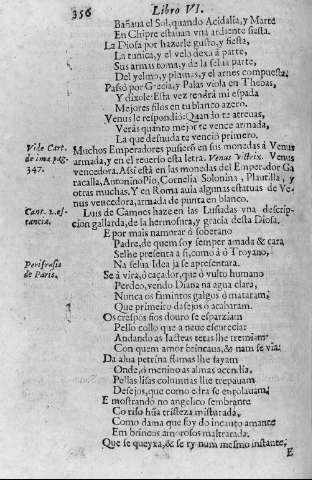 356 Libro VI.
Bañaua el Sol, quando Acidalia, y Marte
En Chipre estauan vna ardiente siesta.
La Diosa por hazerle gusto, y fiesta,
La tunica, y el velo dexa à parte,
Sus armas toma, y de la selua parte,
Del yelmo, y plumas, y el arnes compuesta.
Passò por Grecia, y Palas viola en Thebas,
Y dixole: Esta vez tendrà mi espada
Mejores filos en tu blanco azero.
Venus le respondiò: Quando te atreuas,
Veràs quanto mejor te vence armada,
La que desnuda te venciò primero.
Vide Cart.
de ima. pag.
347.
Muchos Emperadores pusierõ en sus monedas à Venus
armada, y en el reuerso esta letra. Venus Victrix. Venus
vencedora. Assi està en las monedas del Emperador Ga
racalla, Antonino Pio, Cornelia Solonina, Plautilla, y
otras muchas. Y en Roma auia algunas estatuas de Ve
nus vencedora, armada de punta en blanco.
Cant. 2. es-
tancia.
Luis de Camoes haze en las Lusiadas vna descrip-
cion gallarda, de la hermosura, y gracia desta Diosa.
E por mais namorar ò soberano
Padre, de quem foy semper amada & cara
Selhe presenta a si, como à ò Troyano,
Perifrasis
de Paris.
Na selua Idea ja se apresentara.
Se à vira, ò caçador, que ò vulto humano
Perdeo, vendo Diana na agua clara,
Nunca os famintos galgos ò mataram,
Que primeiro desejos ò acabaram.
Os crespos fios douro se esparziam
Pello collo que a neue escurecia:
Andando as lacteas tetas lhe tremiam
Con quem amor brincaua, & nam se via:
Da alua petrina flamas lhe sayam
Onde, ò menino as almas accndia,
Pellas lisas columnas lhe trepauam
Desejos, que como edra se enrolauam;
E mostrando no angelico sembrante
Co riso hũa tristeza misturada,
Como dama que foy do incauto amante
Em brincos amorosos maltratada.
Que se queyxa, & se ry num mesmo instante,
E